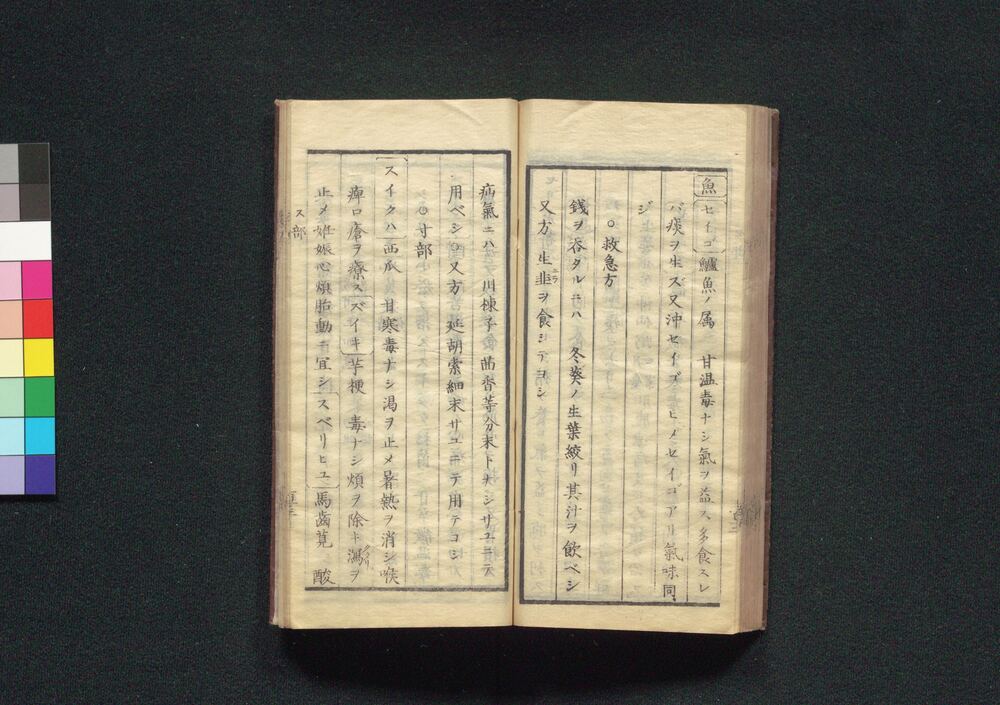 魚 セイゴ 鱸魚ノ属 甘温毒ナシ氣ヲ益ス多食スレ
バ痰ヲ生ズ又沖セイゴヒメセイゴアリ氣味同
ジ
○救急方
銭ヲ呑タルニハ 冬葵ノ生葉絞リ其汁ヲ飲ベシ
又方 生韭ヲ食シテヨシ
ニラ
疝氣ニハ 川楝子 茴香等分末トナシサユニテ
用ベシ○又方 延胡索細末サユニテ用テヨシ
○寸部
スイクハ 西瓜 甘寒毒ナシ渇ヲ止メ暑熱ヲ消シ喉
痺口瘡ヲ療ス ズイキ 芋梗 毒ナシ煩ヲ除キ瀉ヲ
止メ妊娠心煩胎動ニ宜シ スベリヒユ 馬齒莧 酸
ス部